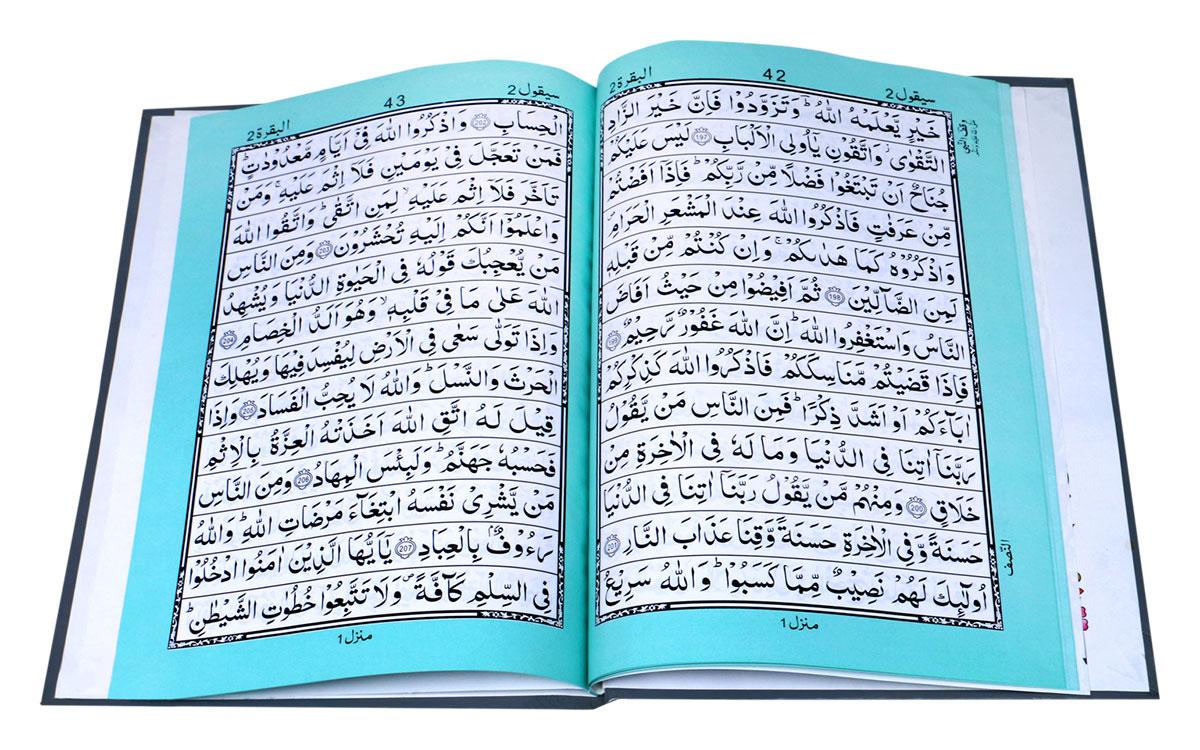 سيقول 2
42
البقرة 2
خَيْرٍ يَّعْلَمْهُ اللّٰهُ ؕ وَتَزَوَّدُوْا فَاِنَّ خَيْرَ الزَّادِ
التَّقْوٰى ز وَاتَّقُوْنِ يٰٓاُولِى الْاَلْبَابِ 197 لَيْسَ عَلَيْكُمْ
جُنَاحٌ اَنْ تَبْتَغُوْا فَضْلًا مِّنْ رَّبِّكُمْ ؕ فَاِذَآ اَفَضْتُمْ
مِّنْ عَرَفٰتٍ فَاذْكُرُوا اللّٰهَ عِنْدَ الْمَشْعَرِ الْحَرَامِ
وَاذْكُرُوْهُ كَمَا هَدٰىكُمْ ۚ وَاِنْ كُنْتُمْ مِّنْ قَبْلِهٖ
لَمِنَ الضَّآلِّيْنَ 198 ثُمَّ اَفِيْضُوْا مِنْ حَيْثُ اَفَاضَ
النَّاسُ وَاسْتَغْفِرُوا اللّٰهَ ؕ اِنَّ اللّٰهَ غَفُوْرٌ رَّحِيْمٌ 199
فَاِذَا قَضَيْتُمْ مَّنَاسِكَكُمْ فَاذْكُرُوا اللّٰهَ كَذِكْرِكُمْ
اٰبَآءَكُمْ اَوْ اَشَدَّ ذِكْرًا ؕ فَمِنَ النَّاسِ مَنْ يَّقُوْلُ
رَبَّنَآ اٰتِنَا فِى الدُّنْيَا وَمَا لَهٗ فِى الْاٰخِرَةِ مِنْ
خَلَاقٍ 200 وَمِنْهُمْ مَّنْ يَّقُوْلُ رَبَّنَآ اٰتِنَا فِى الدُّنْيَا
حَسَنَةً وَّفِى الْاٰخِرَةِ حَسَنَةً وَّقِنَا عَذَابَ النَّارِ 201
اُولٰٓئِكَ لَهُمْ نَصِيْبٌ مِّمَّا كَسَبُوْا ؕ وَاللّٰهُ سَرِيْعُ
وقف النبي
النصف
منزل 1
سيقول 2
43
البقرة 2
الْحِسَابِ 202 وَاذْكُرُوا اللّٰهَ فِىْٓ اَيَّامٍ مَّعْدُوْدٰتٍ ؕ
فَمَنْ تَعَجَّلَ فِىْ يَوْمَيْنِ فَلَآ اِثْمَ عَلَيْهِ ۚ وَمَنْ
تَاَخَّرَ فَلَآ اِثْمَ عَلَيْهِ ۙ لِمَنِ اتَّقٰى ؕ وَاتَّقُوا اللّٰهَ
وَاعْلَمُوْٓا اَنَّكُمْ اِلَيْهِ تُحْشَرُوْنَ 203 وَمِنَ النَّاسِ
مَنْ يُّعْجِبُكَ قَوْلُهٗ فِى الْحَيٰوةِ الدُّنْيَا وَيُشْهِدُ
اللّٰهَ عَلٰى مَا فِىْ قَلْبِهٖ ۙ وَهُوَ اَلَدُّ الْخِصَامِ 204
وَاِذَا تَوَلّٰى سَعٰى فِى الْاَرْضِ لِيُفْسِدَ فِيْهَا وَيُهْلِكَ
الْحَرْثَ وَالنَّسْلَ ؕ وَاللّٰهُ لَا يُحِبُّ الْفَسَادَ 205 وَاِذَا
قِيْلَ لَهُ اتَّقِ اللّٰهَ اَخَذَتْهُ الْعِزَّةُ بِالْاِثْمِ
فَحَسْبُهٗ جَهَنَّمُ ؕ وَلَبِئْسَ الْمِهَادُ 206 وَمِنَ النَّاسِ
مَنْ يَّشْرِىْ نَفْسَهُ ابْتِغَآءَ مَرْضَاتِ اللّٰهِ ؕ وَاللّٰهُ
رَءُوْفٌۢ بِالْعِبَادِ 207 يٰٓاَيُّهَا الَّذِيْنَ اٰمَنُوا ادْخُلُوْا
فِى السِّلْمِ كَآفَّةً ۪ وَلَا تَتَّبِعُوْا خُطُوٰتِ الشَّيْطٰنِ ؕ
منزل 1